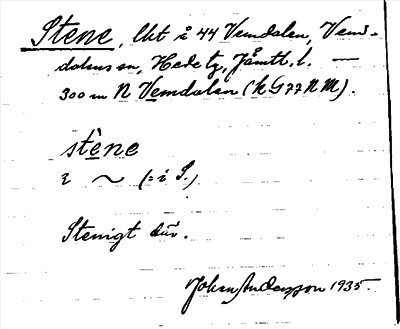 Stene, lht i 44 Vemdalen, Vemd-
dalens sn, Hede tg, Jämtl. l. —
300 m N Vemdalen (k G 77 N M).
stène
i ~ (= i S.)
Stenigt där.
Johan Andersson 1935.